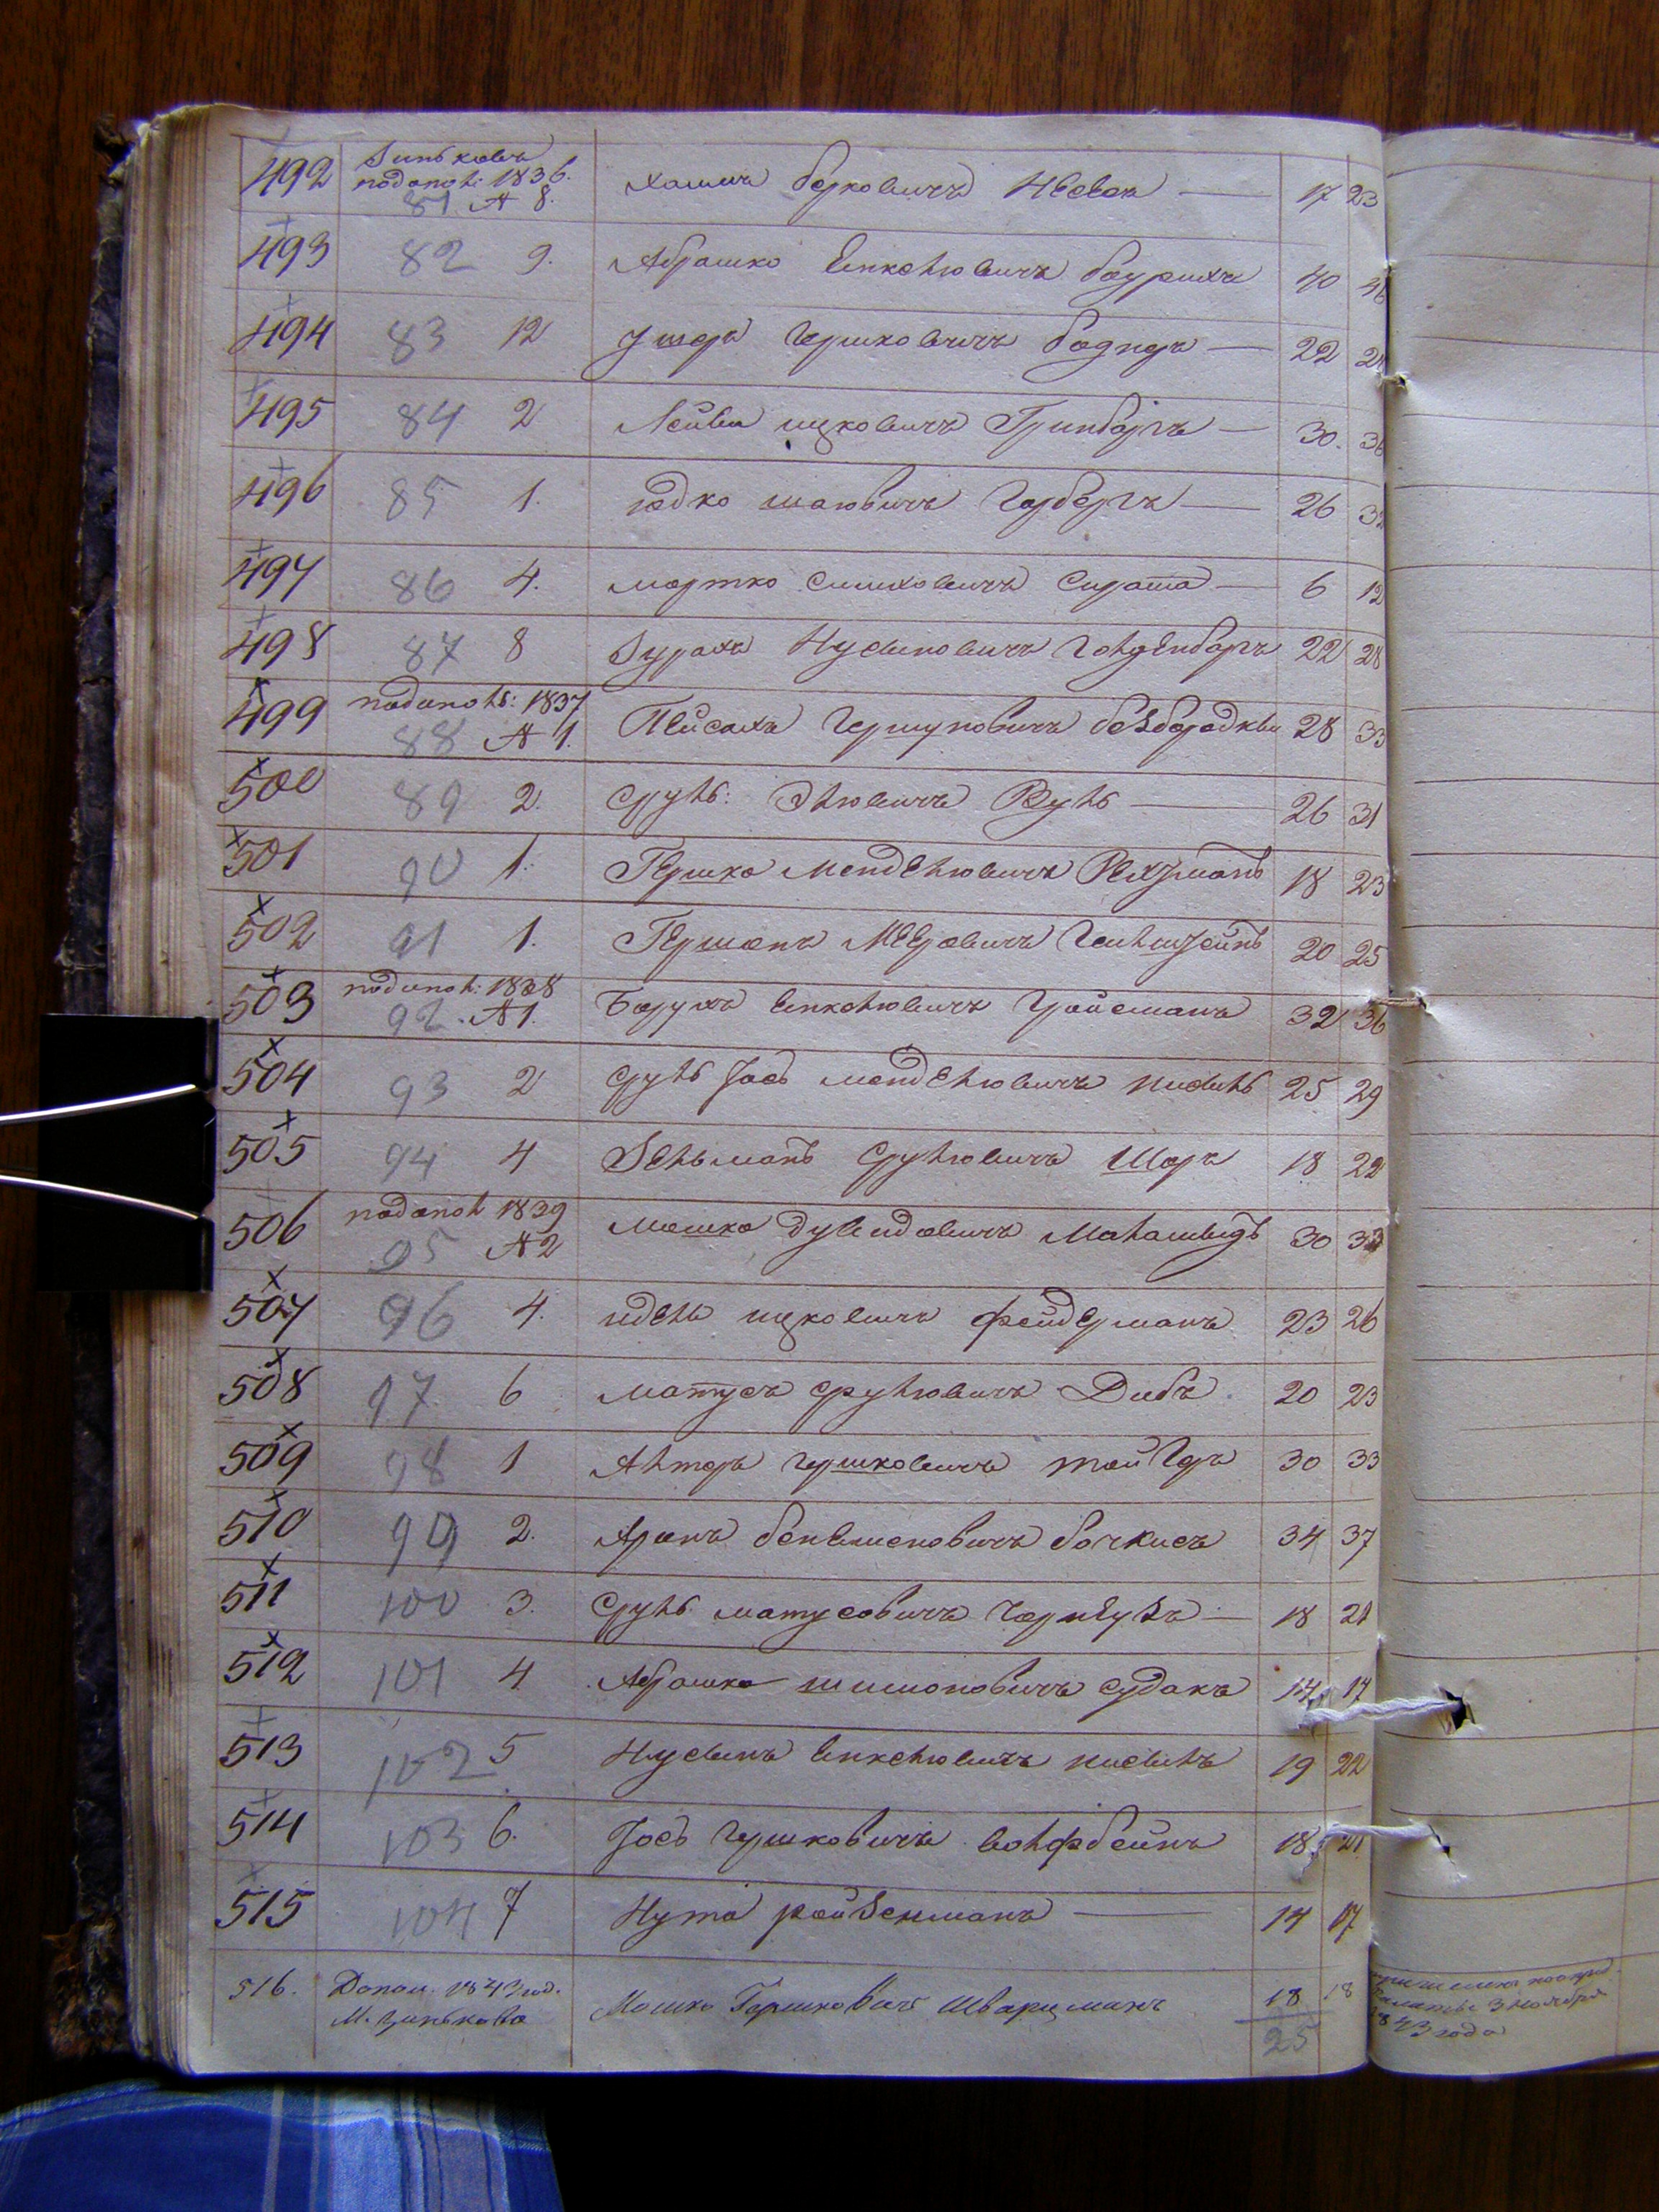 492 Зиньковъ
подополн: 1836.
81 № 8. Хаимъ Берковичъ 17 23
493 82 9. Абрашко Янкелювичъ Баурихъ 40 46
494 83 12 Ушеръ Гершковичъ Боднеръ — 22 28
495 84 2 Лейба ицковичъ Гринберъгъ — 30. 36
496 85 1. Юдко шаювичъ Герберъгъ — 26 32
497 86 4. мортко симховичъ Сирота — 6 12
498 87 8 Зурахъ Нусиновичъ Гольденбергъ 22 28
499 подополн: 1837
88 № 1. Пейсахъ Гершуновичъ безбородкъи 28 33
500 89 2. Сруль: Элювичъ Руль — 26 31
501 90 1. Гершко Менделювичъ Рехтманъ 18 23
502 91 1. Гершонъ Мееровичъ 20 25
503 подополн: 1838
92 № 1. Борухъ Янкелювичъ Гройсманъ 32 36
504 93 2 Сруль Іосъ менделювичъ кисиль 25 29
505 94 4 Зельманъ Срулювичъ Шоръ 18 22
506 подополн 1839
95 № 2 Мошко дувидовичъ Маламудъ 30 33
507 96 4. идель ицковичъ фейдерманъ 23 26
508 97 6 матусъ срулювичъ Дибъ. 20 23
509 98 1 Алтеръ гершковичъ 30 33
510 99 2. Аронъ бенъяменовичъ бочкисъ 34 37
511 100 3. Сруль матусовичъ — 18 21
512 101 4 Абрашко шимоновичъ судакъ 14 17
513 102 5 Нусинъ Янкелювичъ кисиль 19 22
514 103 6. Іосъ Гершковичъ вольфбейнъ 18 21
515 104 7 Нута ройзенманъ — 14 17
516. Допол. 1842 год.
М. Зинькова Мошко Гершковичъ Шварцманъ 18 18
25
3 Ноября
1843 года